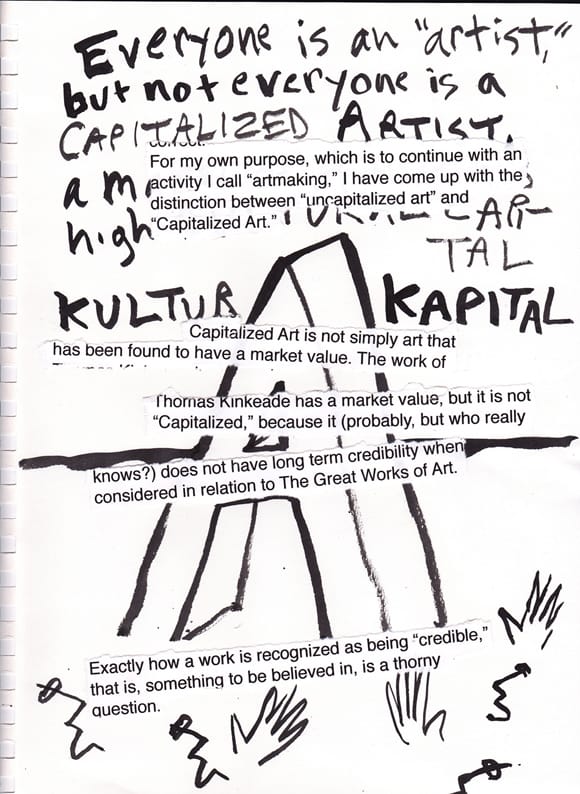 Everyone is an "artist,"
but not everyone is a
CAPITALIZED ARTIST.
For my own purpose, which is to continue with an
a m
activity I call “artmaking,” I have come up with the
distinction between “uncapitalized art” and
high
“Capitalized Art.”
TAL
KULTUR KAPITAL
Capitalized Art is not simply art that
has been found to have a market value. The work of
Thomas Kinkeade has a market value, but it is not
“Capitalized,” because it (probably, but who really
knows?) does not have long term credibility when
considered in relation to The Great Works of Art.
Exactly how a work is recognized as being “credible,”
that is, something to be believed in, is a thorny
question.